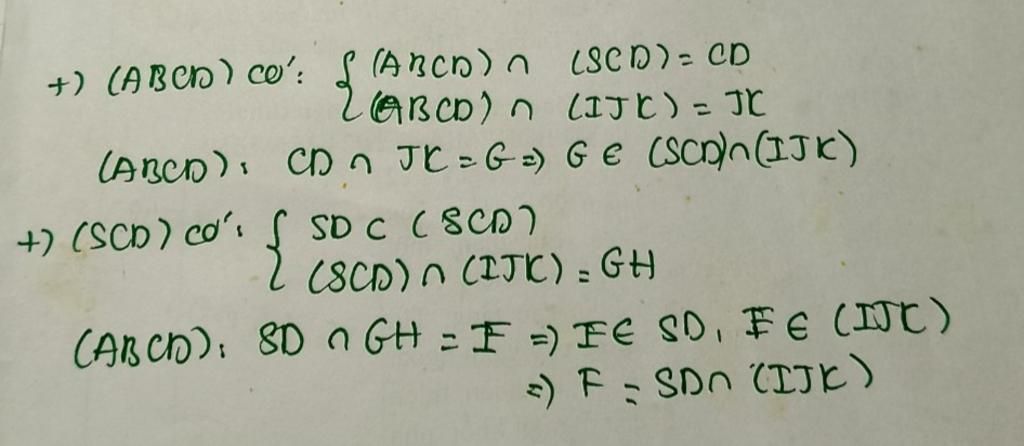 +) (ABCD) có: { (ABCD) ∩ (SCD) = CD
(ABCD) ∩ (IJK) = JK
(ABCD): CD ∩ JK = G => G ∈ (SCD) ∩ (IJK)
+) (SCD) có: { SD ⊂ (SCD)
(SCD) ∩ (IJK) = GH
(ABCD): SD ∩ GH = F => F ∈ SD, F ∈ (IJK)
=> F = SD ∩ (IJK)